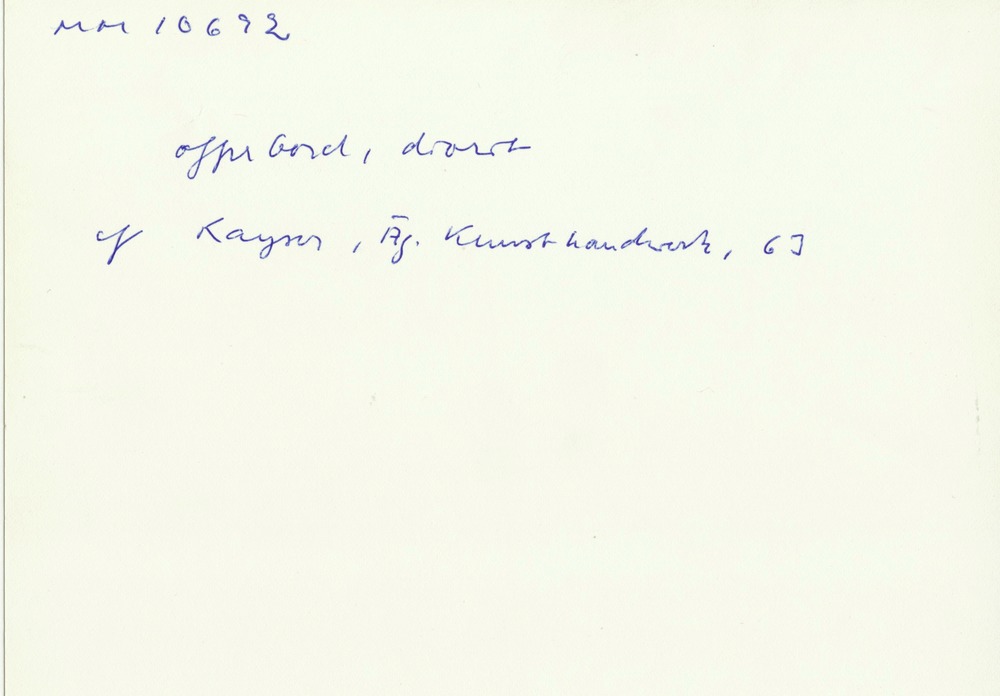 MM 10692
offerbord, diorit
cf Kayser, Äg. Kunsthandwerk, 63